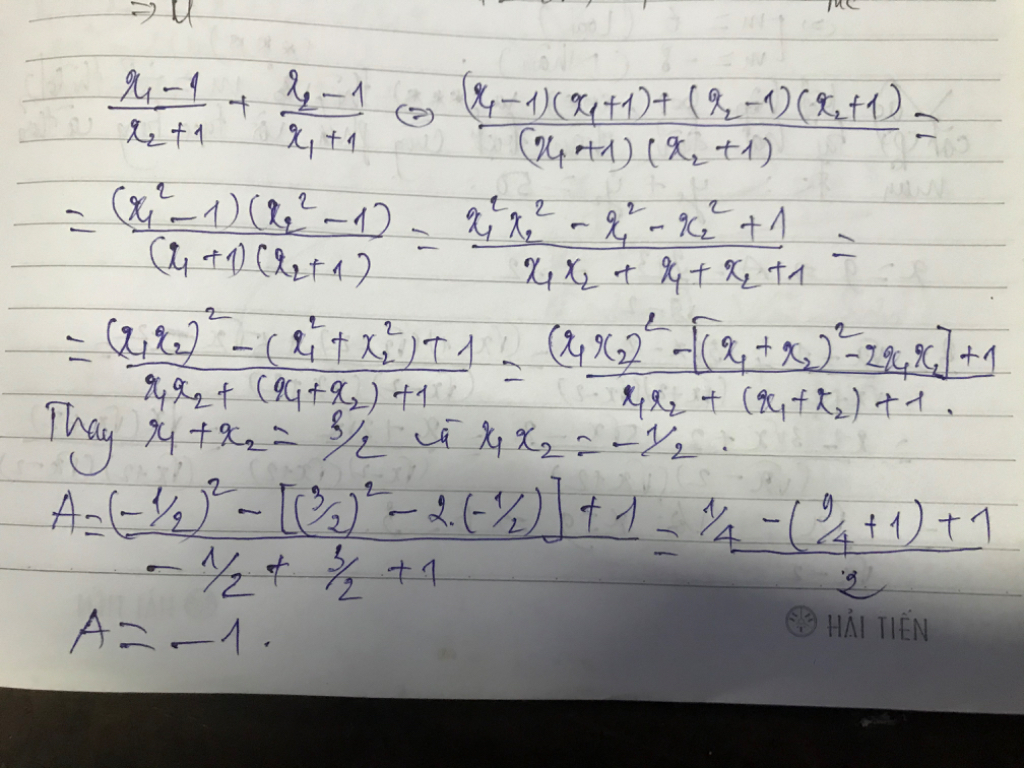 =>
(x₁ - 1)/(x₂ + 1) + (x₂ - 1)/(x₁ + 1) ⇔ ((x₁ - 1)(x₁ + 1) + (x₂ - 1)(x₂ + 1))/((x₁ + 1)(x₂ + 1)) =
= ((x₁² - 1)(x₂² - 1))/((x₁ + 1)(x₂ + 1)) = (x₁²x₂² - x₁² - x₂² + 1)/(x₁x₂ + x₁ + x₂ + 1) =
= ((x₁x₂)² - (x₁² + x₂²) + 1)/(x₁x₂ + (x₁ + x₂) + 1) = ((x₁x₂)² - [(x₁ + x₂)² - 2x₁x₂] + 1)/(x₁x₂ + (x₁ + x₂) + 1).
Thay x₁ + x₂ = 3/2 và x₁x₂ = -1/2.
A = ((-1/2)² - [(3/2)² - 2.(-1/2)] + 1)/(-1/2 + 3/2 + 1) = (1/4 - (9/4 + 1) + 1)/2
A = -1.
HẢI TIẾN